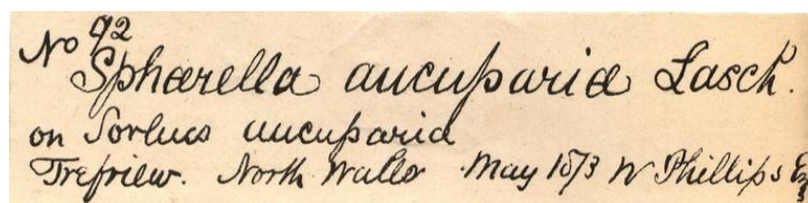 No 92
Sphærella aucuparia Lasch.
on Sorbus aucuparia
Trefriew. North Wales May 1873 W Phillips Esq